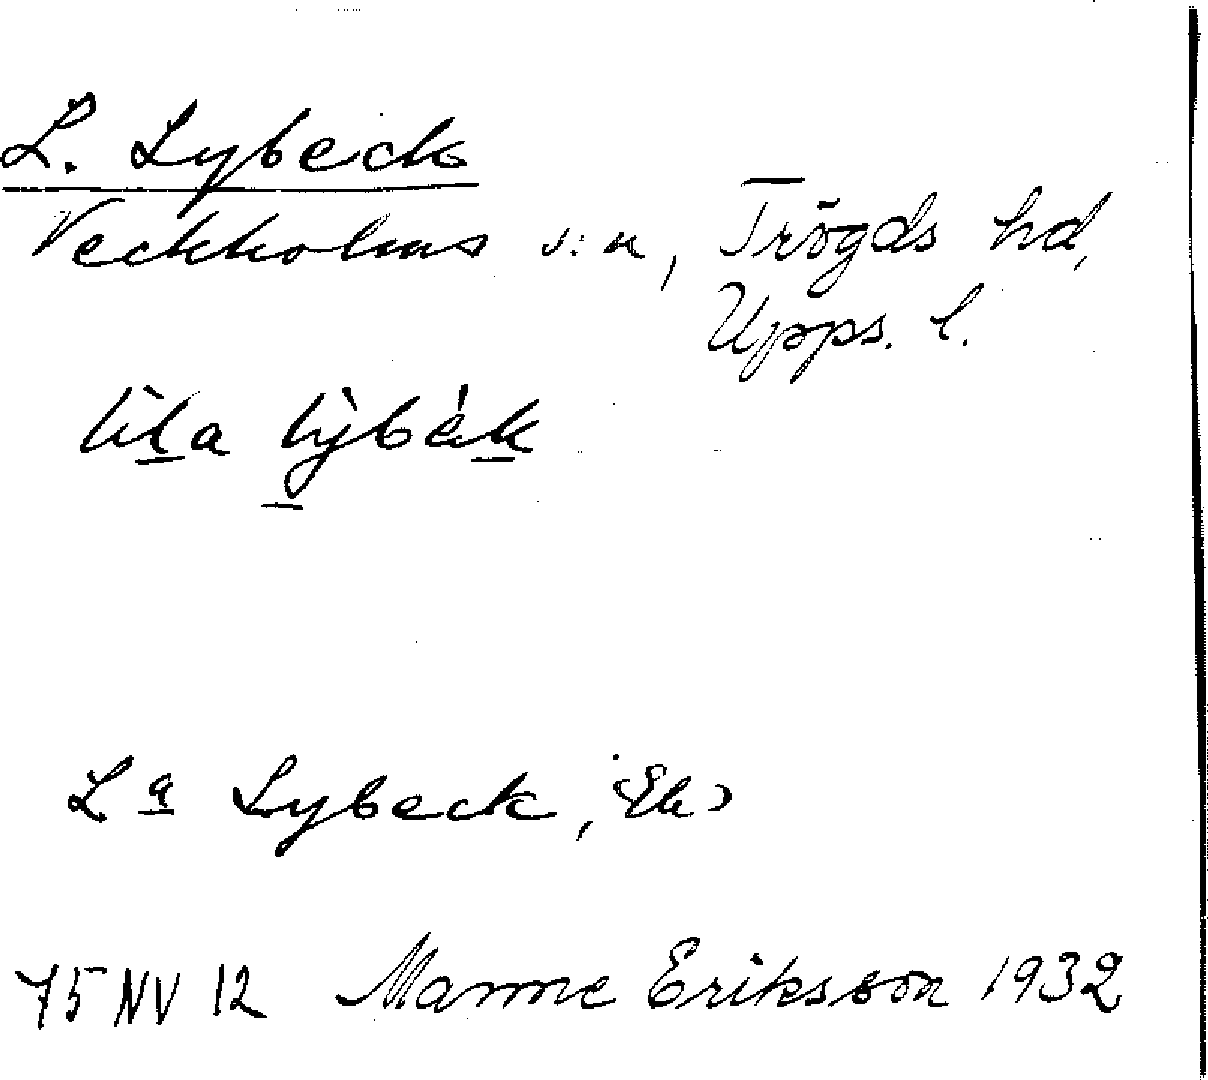 L. Lybeck
Veckholms s:n, Trögds hd,
Upps. l.
lìla lỳbék
La Lybeck, (Ek)
75 NV 12 Manne Eriksson 1932